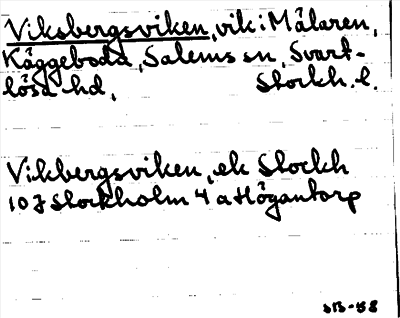 Viksbergsviken, vik i Mälaren,
Käggeboda, Salems sn, Svart-
lösa hd, Stockh. l.
Vikbergsviken, ek Stockh
10 J Stockholm 4 a Högantorp